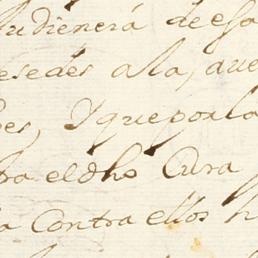 Audiencia de esa
esedes a la, que
es, Y que por la
tra el dho Cura
la Contra ellos h